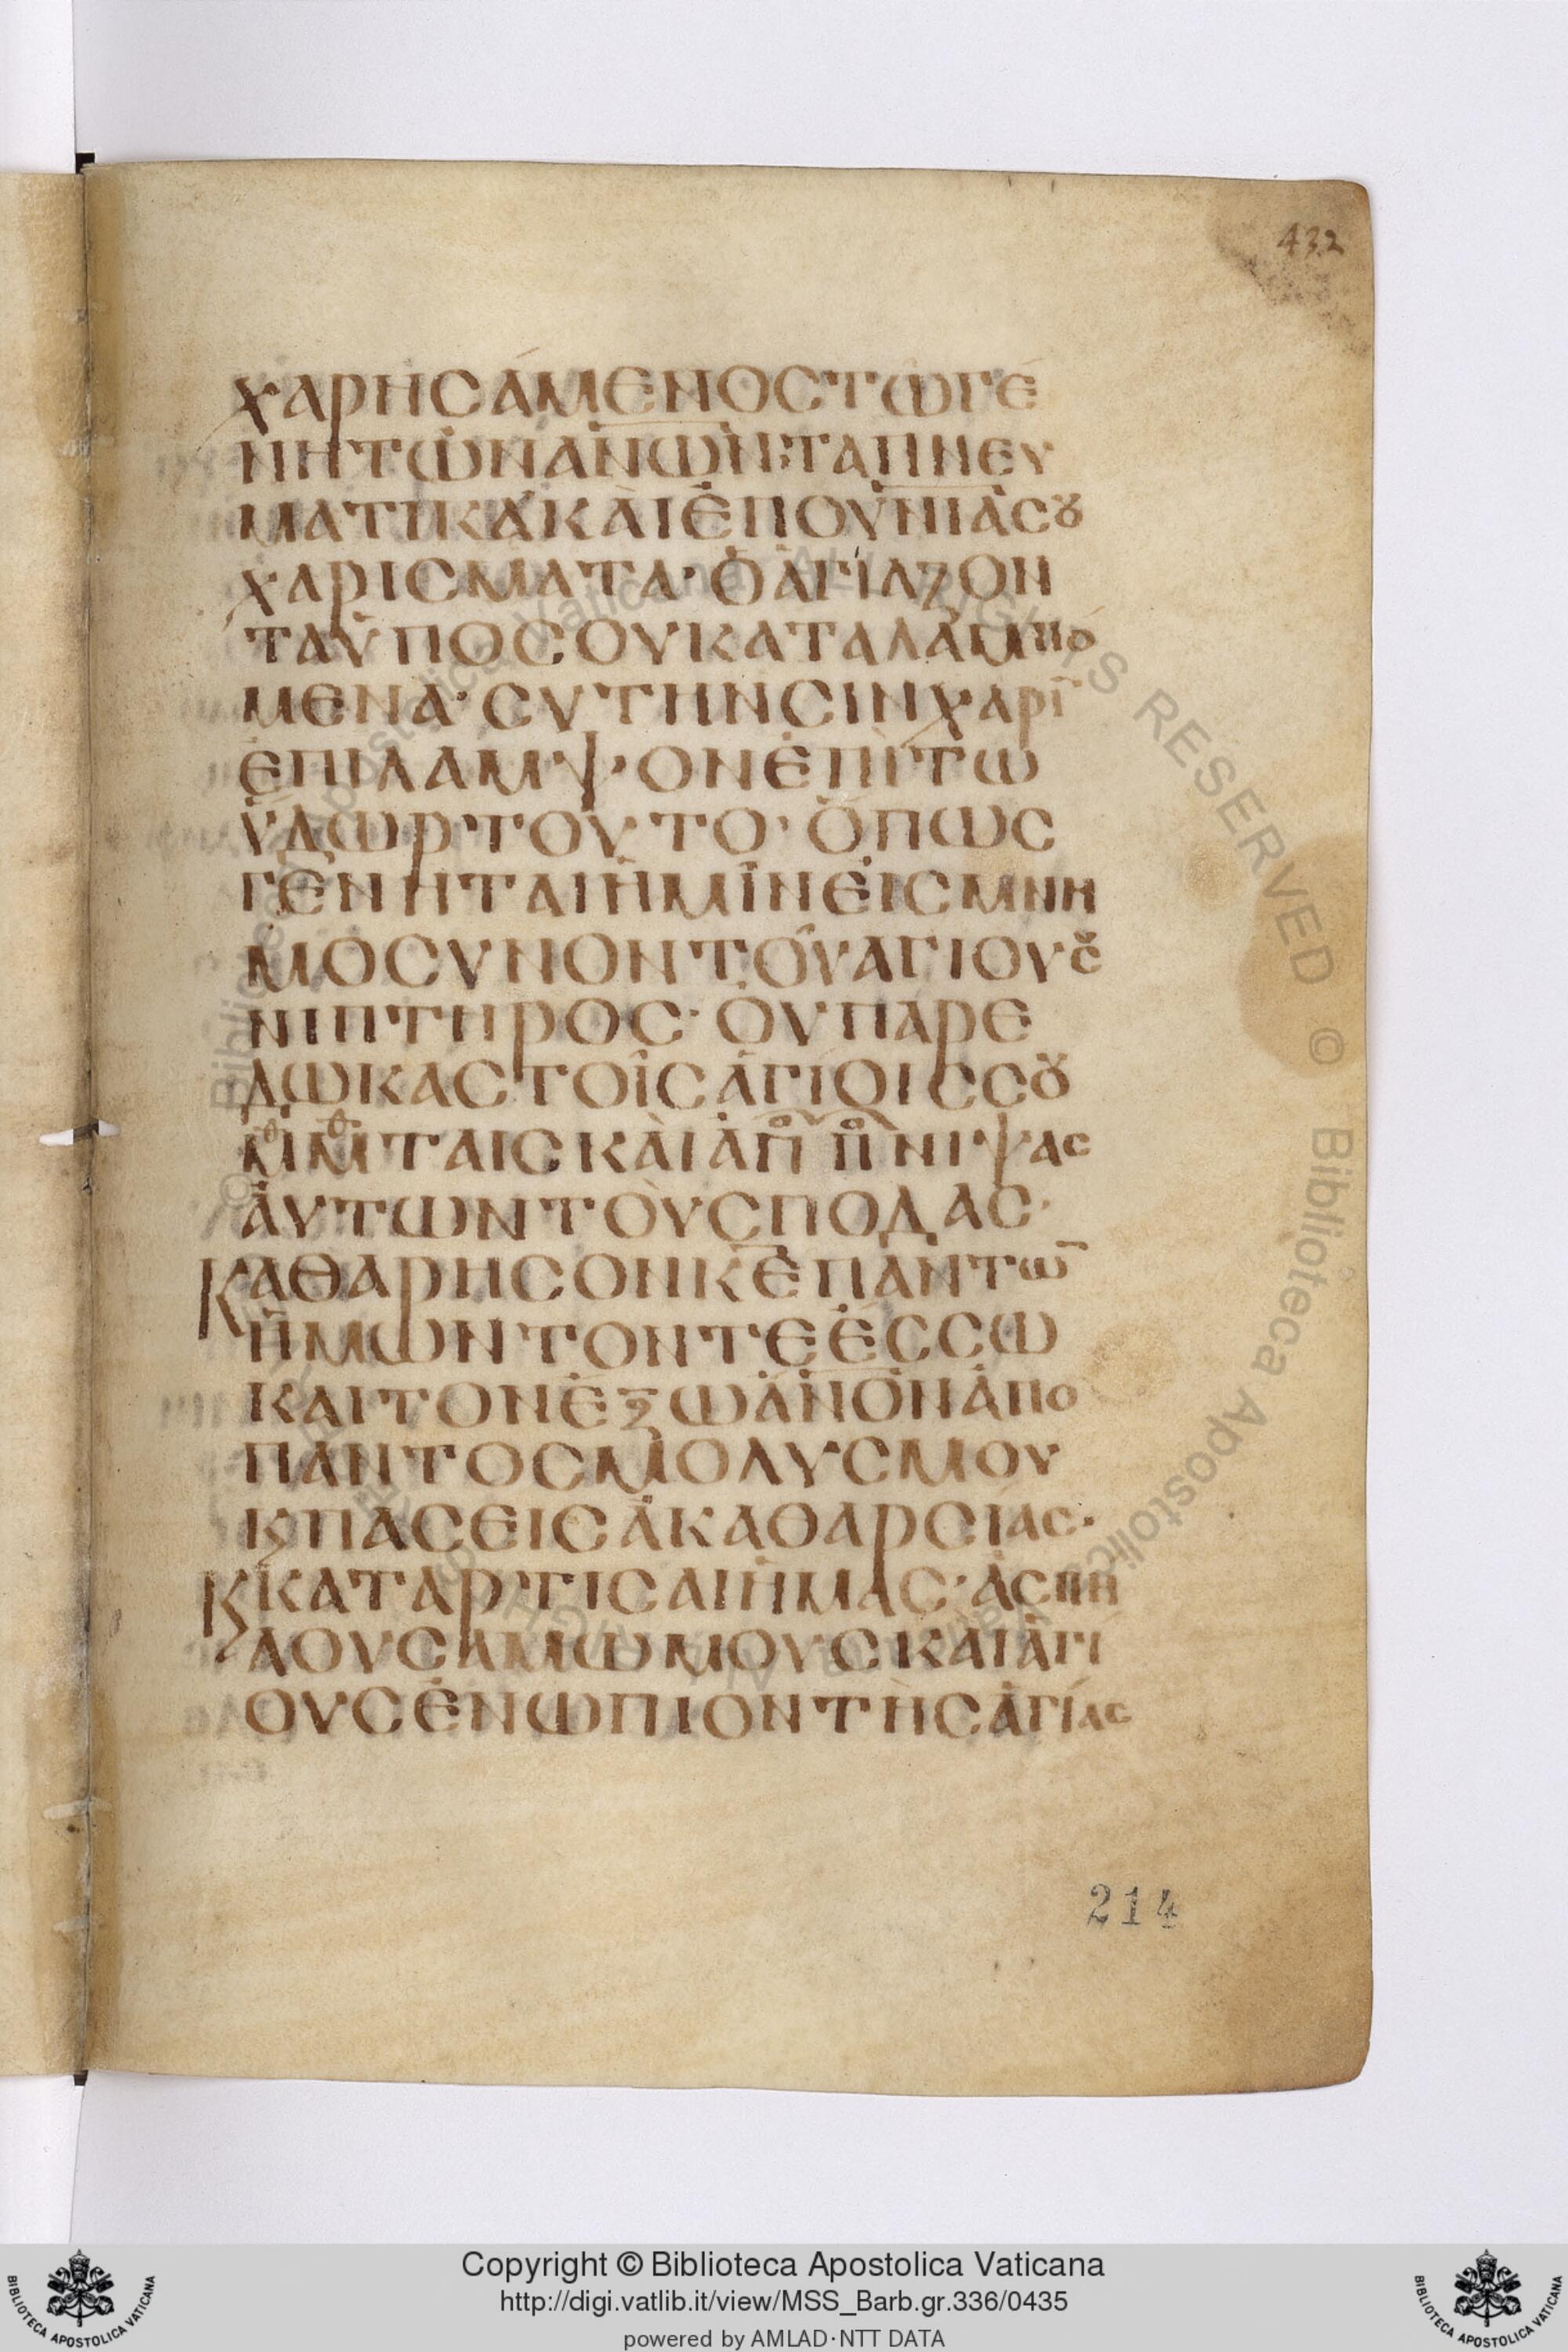 432
ΧΑΡΗСΆΜΕΝΟСΤΩΓΕ
ΝΗΤΩΝΑ̅Ν̅Ω̅Ν̅·ΤΑΠΝΕΥ
ΜΑΤΙΚᾺΚΑῚἘΠΟΥ̅Ν̅Ι̅ΑСȣ
ΧΑΡΙСΜΑΤΑ·ὉἉΓΊΑΖΟΝ
ΤΑὙΠΟСΟΥΚΑΤΑΛΑΜΠΟ
ΜΕΝΑ·СΥΤΗΝСΙΝΧΑΡΙ̅
ἘΠΙΛΑΜΨΟΝἘΠῚΤΩ
ὝΔΩΡΤΟΥ͂ΤΟ·ὍΠΩС
ΓΕΝΗΤΑΙἩΜΙ͂ΝΕἸСΜΝΗ
ΜΟСΥΝΟΝΤΟΥ͂ΑΓΙΟΥС
ΝΙΠΤΗΡΟС·ὉΥΠΑΡΕ
ΔΩΚΑСΤΟΙ͂СἉΓΊΟΙССȣ
ΜΘΙΜΘΤΑΙСΚΑῚἈΠΟ ΠΟΝΙΨΑС
ἈΥΤΩΝΤΟῪСΠΟΔΑС·
ΚΑΘΑΡΗСΟΝΚ̅Ε̅ΠΆΝΤΩ̅
ἩΜΩΝΤΟΝΤΕἜССΩ
ΚΑΙΤΟΝἜΞΩΑ̅Ν̅Ο̅Ν̅ἈΠΟ
ΠΑΝΤΟСΜΟΛΥСΜΟΥ
ΚΠΑСΕΙСἈΚΑΘΑΡСΊΑС·
ΚΚΑΤΑΡΤΙСΑΙἩΜΑС·ἈСΠΗ
ΛΟΥСΑΜΩΜΟΥСΚΑΙἉΓΙ
ΟΥСἘΝΩΠΙΟΝΤΗ͂СἉΓΊΑС
214
© Biblioteca Apostolica Vaticana ALL RIGHTS RESERVED
© Biblioteca Apostolica Vaticana ALL RIGHTS RESERVED
BIBLIOTECA APOSTOLICA VATICANA
Copyright © Biblioteca Apostolica Vaticana
http://digi.vatlib.it/view/MSS_Barb.gr.336/0435
powered by AMLAD·NTT DATA
BIBLIOTECA APOSTOLICA VATICANA